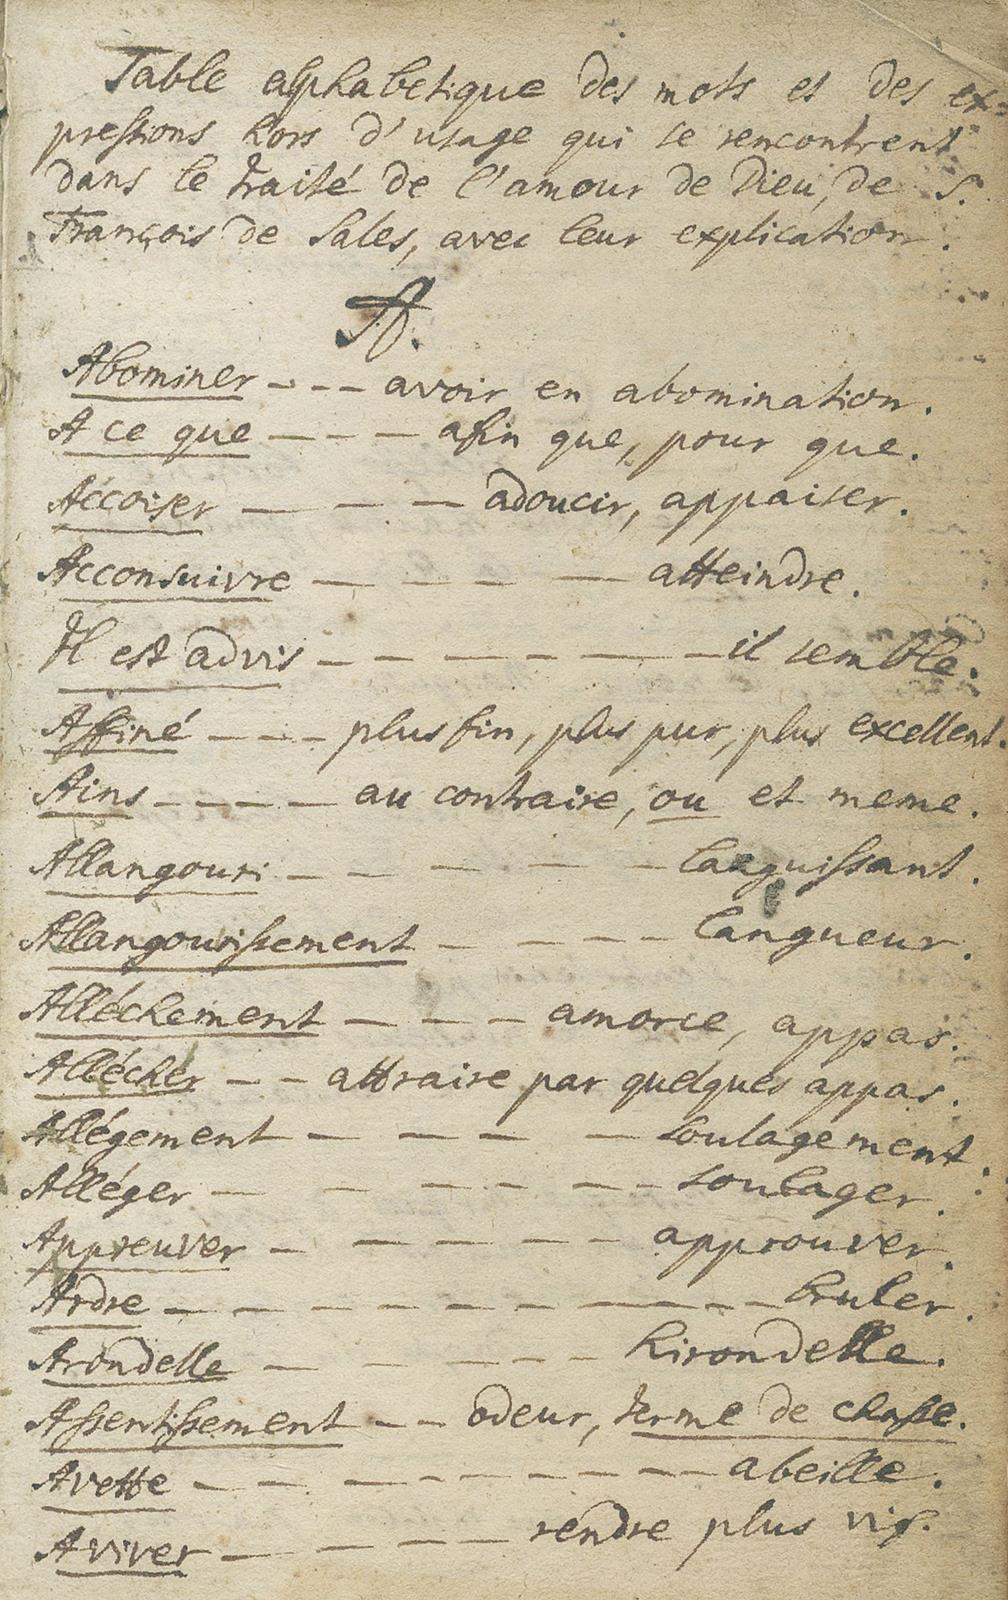 Table alphabetique des mots et des ex-
pressions hors d'usage qui se rencontrent
dans le traité de l'amour de Dieu, de S.
François de Sales, avec leur explication.
A.
Abominer --- avoir en abomination.
A ce que --- afin que, pour que.
Accoiser --- adoucir, appaiser.
Acconsuivre ----- atteindre.
Il est advis ------ il semble.
Affiné --- plus fin, plus pur, plus excellent.
Ains ---- au contraire, ou et meme.
Allangouri ------ languissant.
Allangourissement ---- langueur.
Alléchement --- amorce, appas.
Allécher -- attraire par quelques appas.
Allégement ---- soulagement.
Alléger ------ soulager.
Appreuver ----- approuver.
Ardre -------- bruler.
Arondelle ----- hirondelle.
Assentissement -- odeur, terme de chasse.
Avette -------- abeille.
Aviver ---- rendre plus vif.